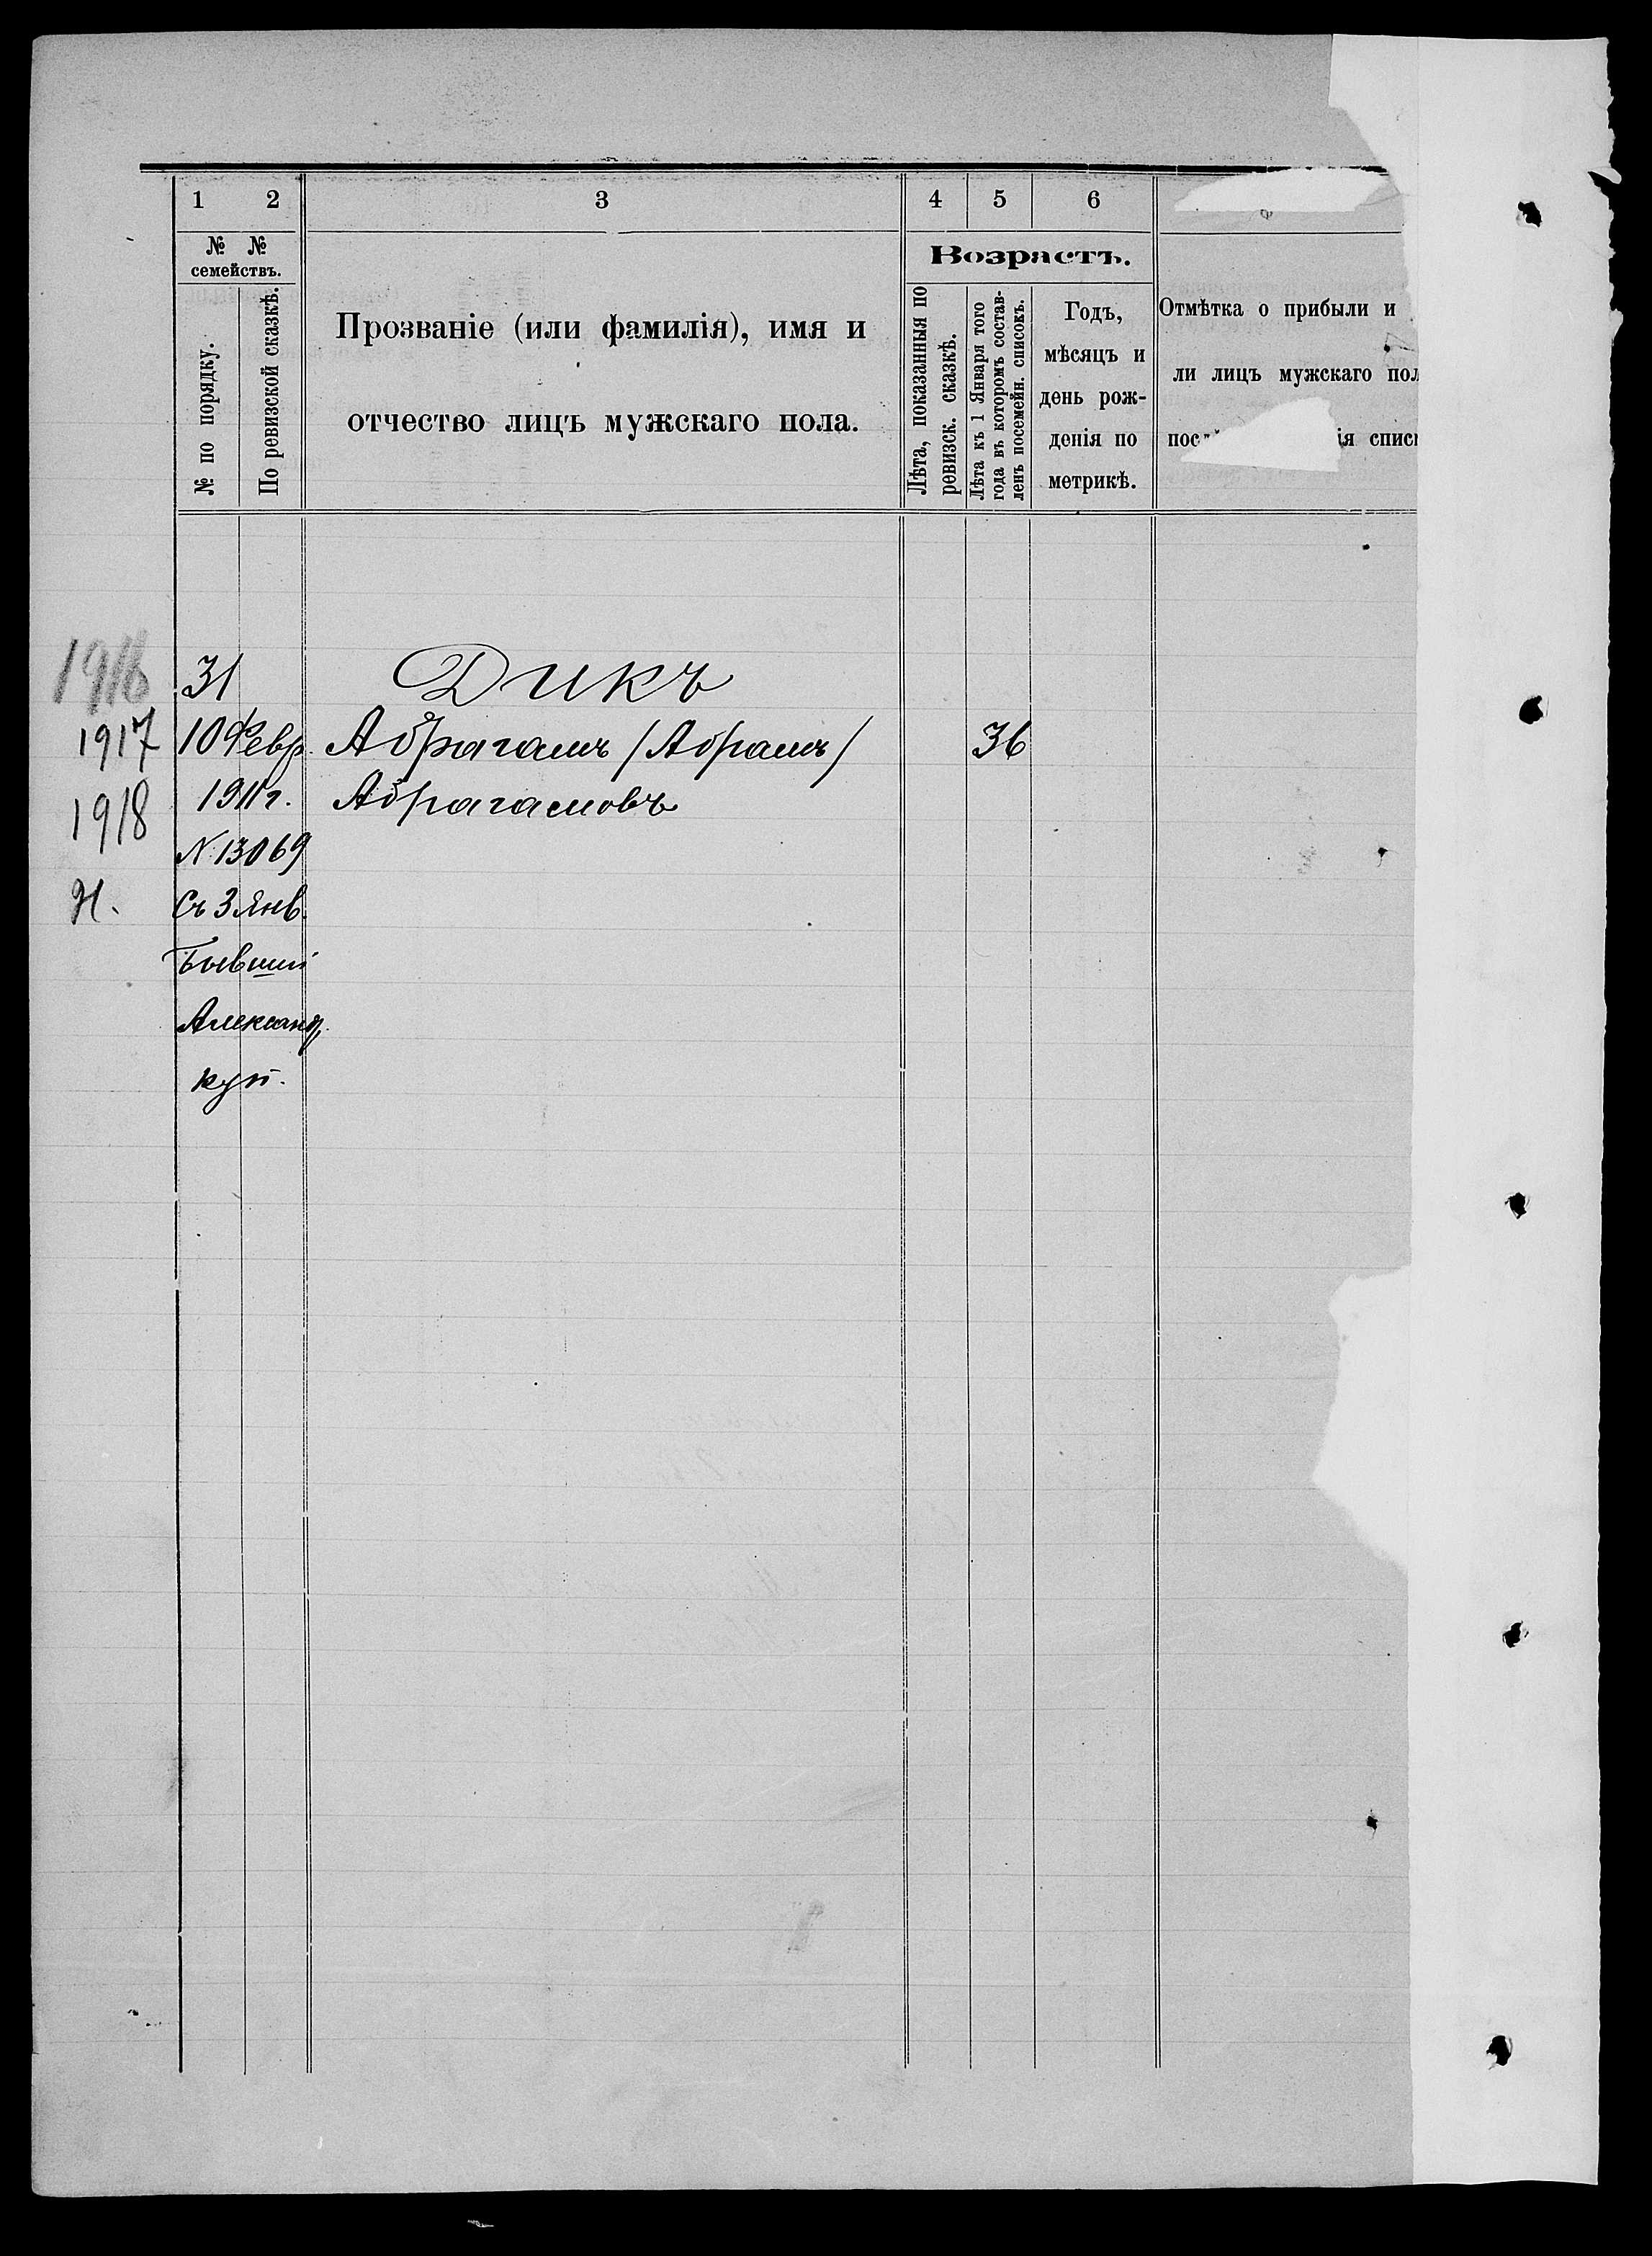 1 2 3 4 5 6
№ № семействъ.
№ по порядку.
По ревизской сказкѣ.
Прозваніе (или фамилія), имя и
отчество лицъ мужскаго пола.
Возрастъ.
Лѣта, показанныя по
ревизск. сказкѣ.
Лѣта къ 1 Января того
года въ которомъ состав-
ленъ посемейн. списокъ.
Годъ,
мѣсяцъ и
день рож-
денія по
метрикѣ.
Отмѣтка о прибыли и
ли лицъ мужскаго пол
списк
1916 31 Дикъ
1917 10 Февр. Абрагамъ (Абрамъ) 36
1911 г. Абрагамовъ
1918
№ 13069
Н. Съ 3 Янв.
Бывшій
Александ.
куп.